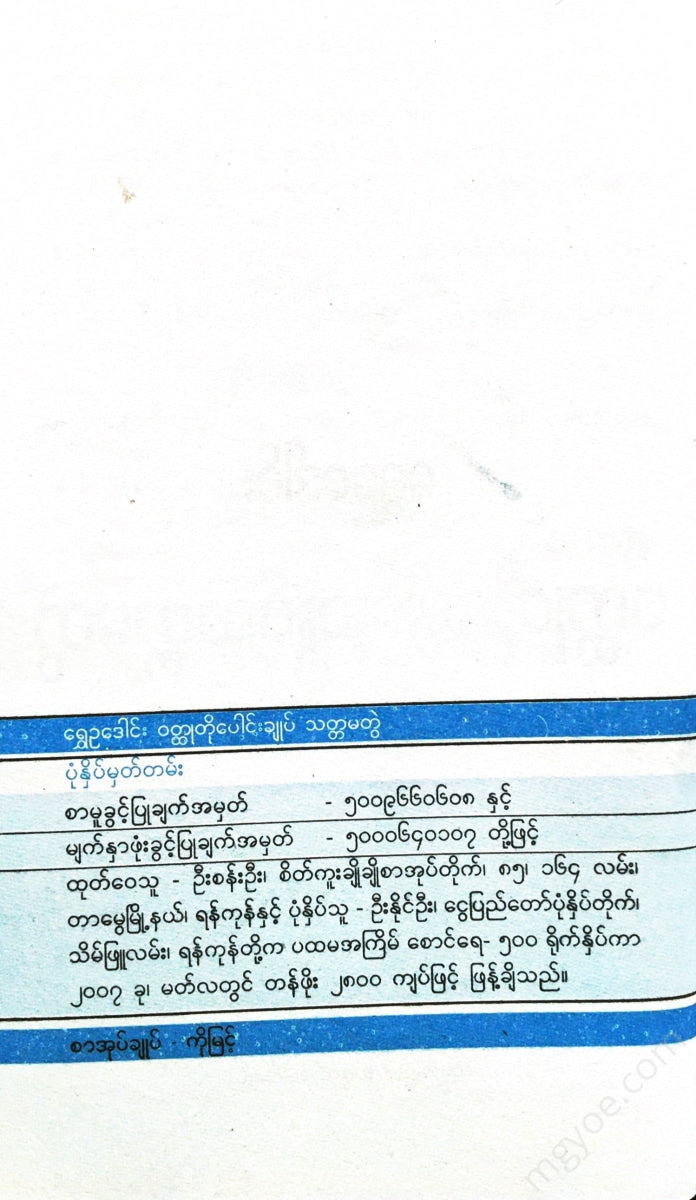 ရွှေဥဒေါင်း ဝတ္ထုတိုပေါင်းချုပ် သတ္တမတွဲ
ပုံနှိပ်မှတ်တမ်း
စာမူခွင့်ပြုချက်အမှတ် - ၅၀၀၉၆၆၀၆၀၈ နှင့်
မျက်နှာဖုံးခွင့်ပြုချက်အမှတ် - ၅၀၀၀၆၄၀၁၀၇ တို့ဖြင့်
ထုတ်ဝေသူ - ဦးစန်းဦး၊ စိတ်ကူးချိုချိုစာအုပ်တိုက်၊ ၈၅၊ ၁၆၄ လမ်း၊
တာမွေမြို့နယ်၊ ရန်ကုန်နှင့် ပုံနှိပ်သူ - ဦးနိုင်ဦး၊ ငွေပြည်တော်ပုံနှိပ်တိုက်၊
သိမ်ဖြူလမ်း၊ ရန်ကုန်တို့က ပထမအကြိမ် စောင်ရေ- ၅၀၀ ရိုက်နှိပ်ကာ
၂၀၀၇ ခု၊ မတ်လတွင် တန်ဖိုး ၂၈၀၀ ကျပ်ဖြင့် ဖြန့်ချိသည်။
စာအုပ်ချုပ် - ကိုမြင့်
mgyoe.com